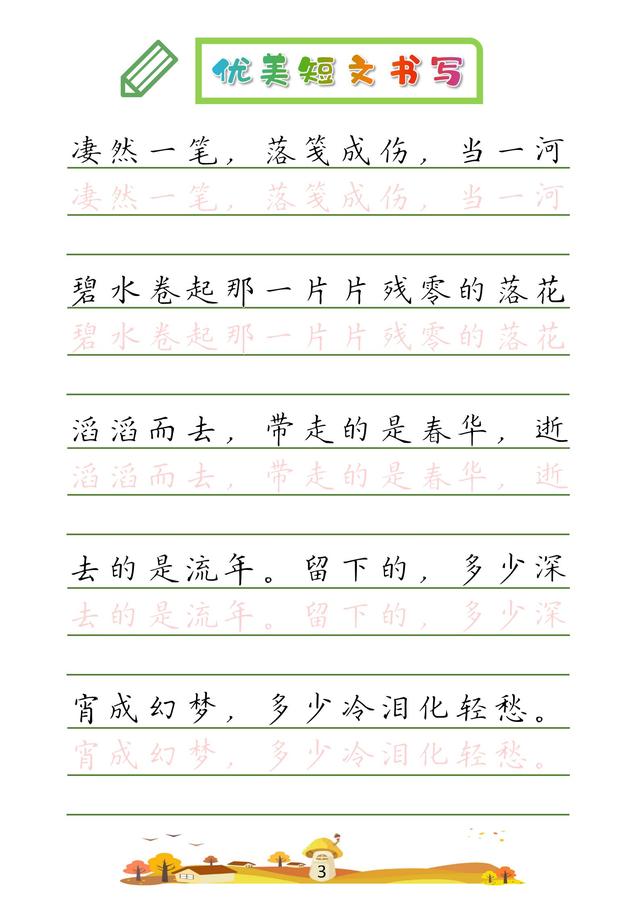 优美短文书写
凄然一笔，落笺成伤，当一河
凄然一笔，落笺成伤，当一河
碧水卷起那一片片残零的落花
碧水卷起那一片片残零的落花
滔滔而去，带走的是春华，逝
滔滔而去，带走的是春华，逝
去的是流年。留下的，多少深
去的是流年。留下的，多少深
宵成幻梦，多少冷泪化轻愁。
宵成幻梦，多少冷泪化轻愁。
3